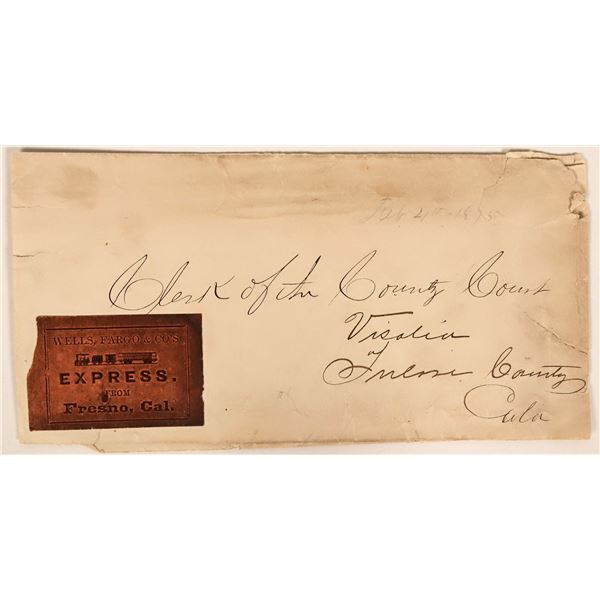 Feb 4th 1875
Clerk of the County Court
Visalia
Tulare County
Cala
WELLS, FARGO & CO'S
EXPRESS.
FROM
Fresno, Cal.